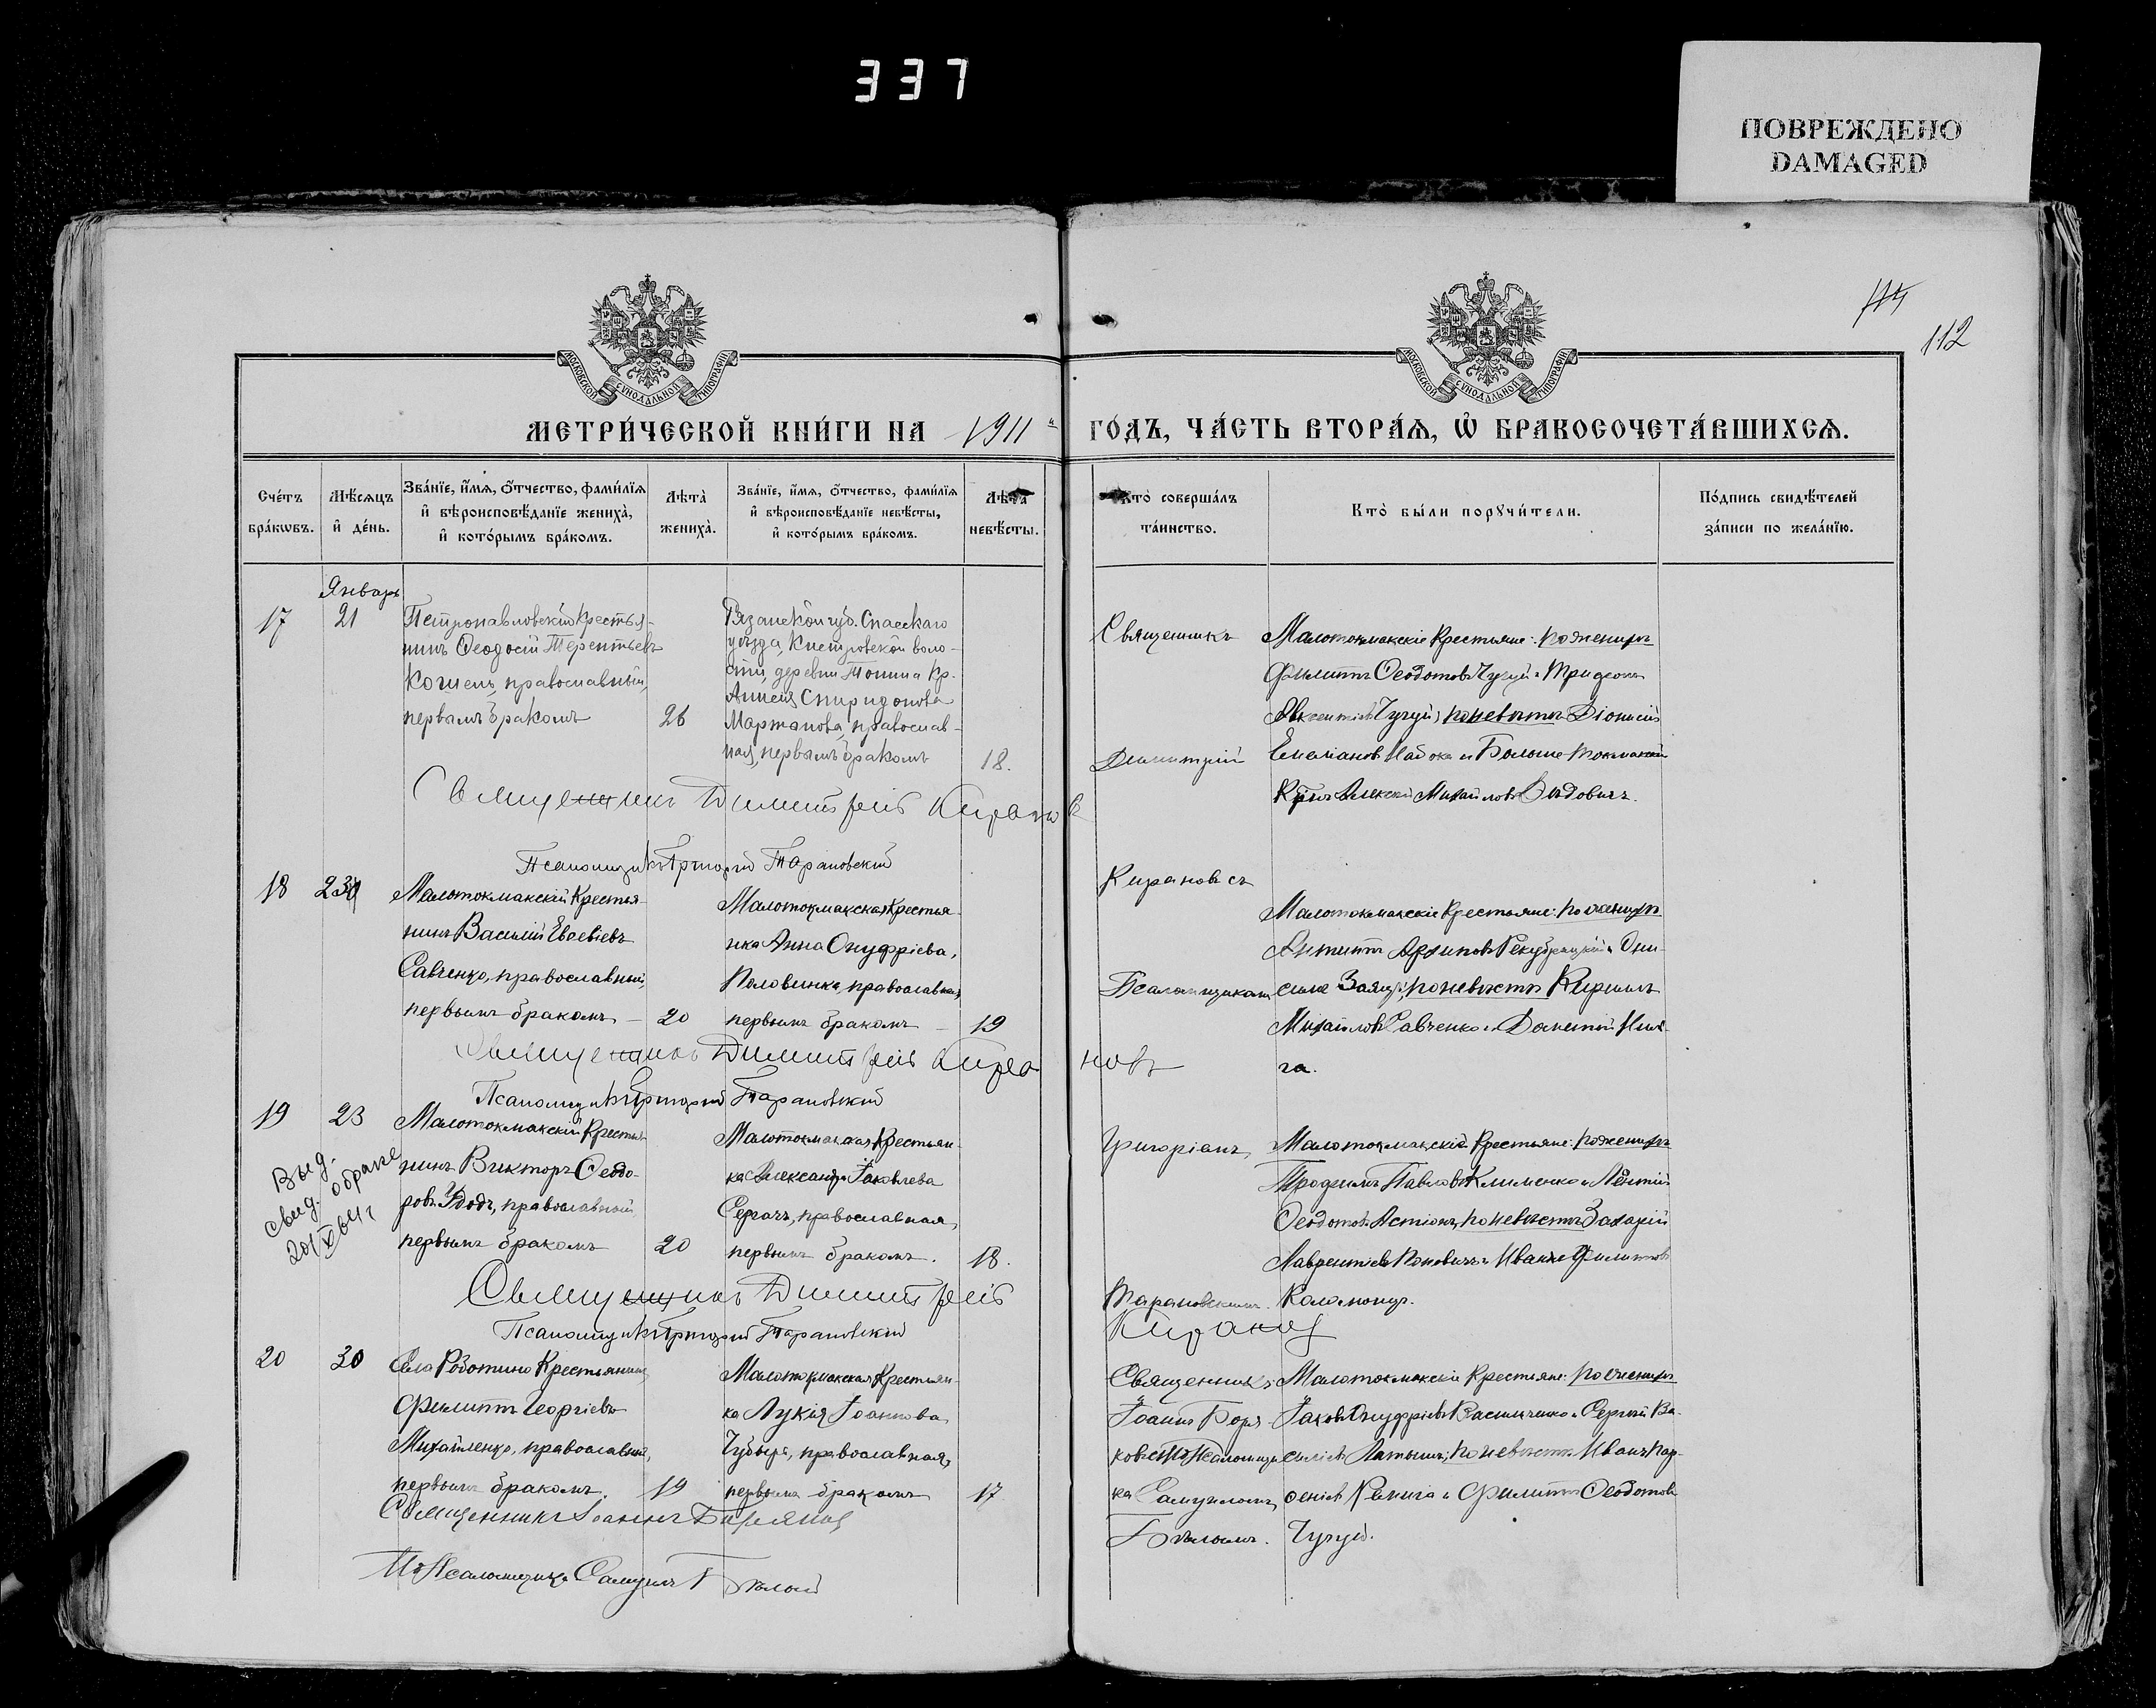 337
ПОВРЕЖДЕНО
DAMAGED
112
МОСКОВСКОЙ СУНОДАЛЬНОЙ ТИПОГРАФІИ
МОСКОВСКОЙ СУНОДАЛЬНОЙ ТИПОГРАФІИ
МЕТРИ́ЧЕСКОЙ КНИ́ГИ НА 1911 ГО́ДЪ, ЧА́СТЬ ВТОРА́Ѧ, Ѽ БРАКОСОЧЕТА́ВШИХСѦ.
Сче́тъ бра́кѡвъ.
Мѣ́сѧцъ и҆ де́нь.
Зва́нїе, и҆́мѧ, ѻ҆́тчество, фами́лїѧ и҆ вѣроисповѣ́данїе жениха̀, и҆ кото́рымъ бра́комъ.
Лѣта̀ жениха̀.
Зва́нїе, и҆́мѧ, ѻ҆́тчество, фами́лїѧ и҆ вѣроисповѣ́данїе невѣ́сты, и҆ кото́рымъ бра́комъ.
Лѣта̀ невѣ́сты.
Кто̀ соверша́лъ та́инство.
Кто̀ бы́ли порꙋчи́тели.
По́дпись свидѣ́телей за́писи по жела́нїю.
Январь
17 21
Петропавловскій крестья-
нинъ Ѳеодосій Терентьевъ
Кошель, православный,
первымъ бракомъ 26
Рязанской губ. Спасскаго
уѣзда, Кистровской воло-
сти, деревни Тонина кр.
Анисія Спиридонова
Мартанова, православ-
ная, первымъ бракомъ 18.
Священникъ
Димитрій
Малотокмакскіе крестьяне: по женихѣ
Филиппъ Ѳеодотовъ Чугуй и Трифонъ
Авксентіевъ Чугуй; по невѣстѣ Діонисій
Емеліановъ Набока и Больше-Токмакскій
Алексій Михайловъ Видовичъ.
Священникъ Димитрій Кирановъ
Псаломщикъ Григорій Тарановскій
18
Малотокмакскій крестья-
нинъ Василій Евсевіевъ
Савченко, православный,
первымъ бракомъ – 20
Малотокмакская крестья-
нка Анна Онуфріева,
Половинка, православная,
первымъ бракомъ – 19
Кирановъ съ
Псаломщикомъ
Малотокмакскіе крестьяне: по женихѣ
Антипъ Архиповъ
Заяцъ; по невѣстѣ Кириллъ
Михайловъ Савченко и
га.
Священникъ Димитрій Кирановъ
Псаломщикъ Григорій Тарановскій
19 23
Выд.
свид. о браке
Малотокмакскій крестья-
нинъ Викторъ Ѳеодо-
ровъ Удодъ, православный,
первымъ бракомъ 20
Малотокмакская крестьян-
ка Александра Іаковлева
Сергачъ, православная,
первымъ бракомъ. 18.
Григоріемъ
Тарановскимъ.
Малотокмакскіе крестьяне: по женихѣ
Трофимъ Павловъ Клименко и Леонтій
Ѳеодотовъ по невѣстѣ Захарій
Лаврентіевъ Поповичъ и Иванъ Филипповъ
Коломоецъ.
Священникъ Димитрій Кирановъ
Псаломщикъ Григорій Тарановскій
20 30
Села Роботино крестьянинъ
Филиппъ Георгіевъ
Михайленко, православный,
первымъ бракомъ. 19
Малотокмакская крестьян-
ка Лукія Іоаннова
Чубыра, православная,
первымъ бракомъ 17
Священникъ
Іоаннъ Боря-
ковъ съ
ка Самуиломъ
Бѣлымъ.
Малотокмакскіе крестьяне: по женихѣ
Іаковъ Онуфріевъ Васильченко и Сергій Ва-
силіевъ Латышъ; по невѣстѣ Иванъ Пар-
ѳеніевъ и Филиппъ Ѳеодотовъ
Чугуй.
Священникъ Іоаннъ Боряковъ
Псаломщика Самуилъ Бѣлый